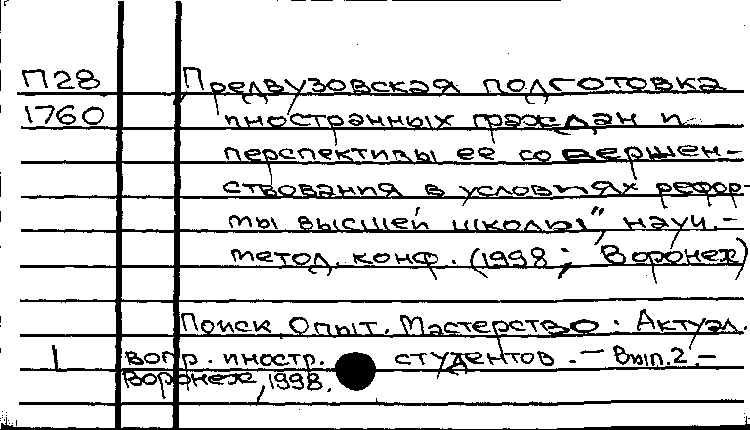 П28 Предвузовская подготовка
1760 иностранных граждан и
перспективы ее совершен-
ствования в условиях рефор-
мы высшей школы", науч.-
метод. конф. (1998; Воронеж)
Поиск. Опыт. Мастерство: Актуал.
1 вопр. иностр. студентов. - Вып.2.-
Воронеж, 1998.